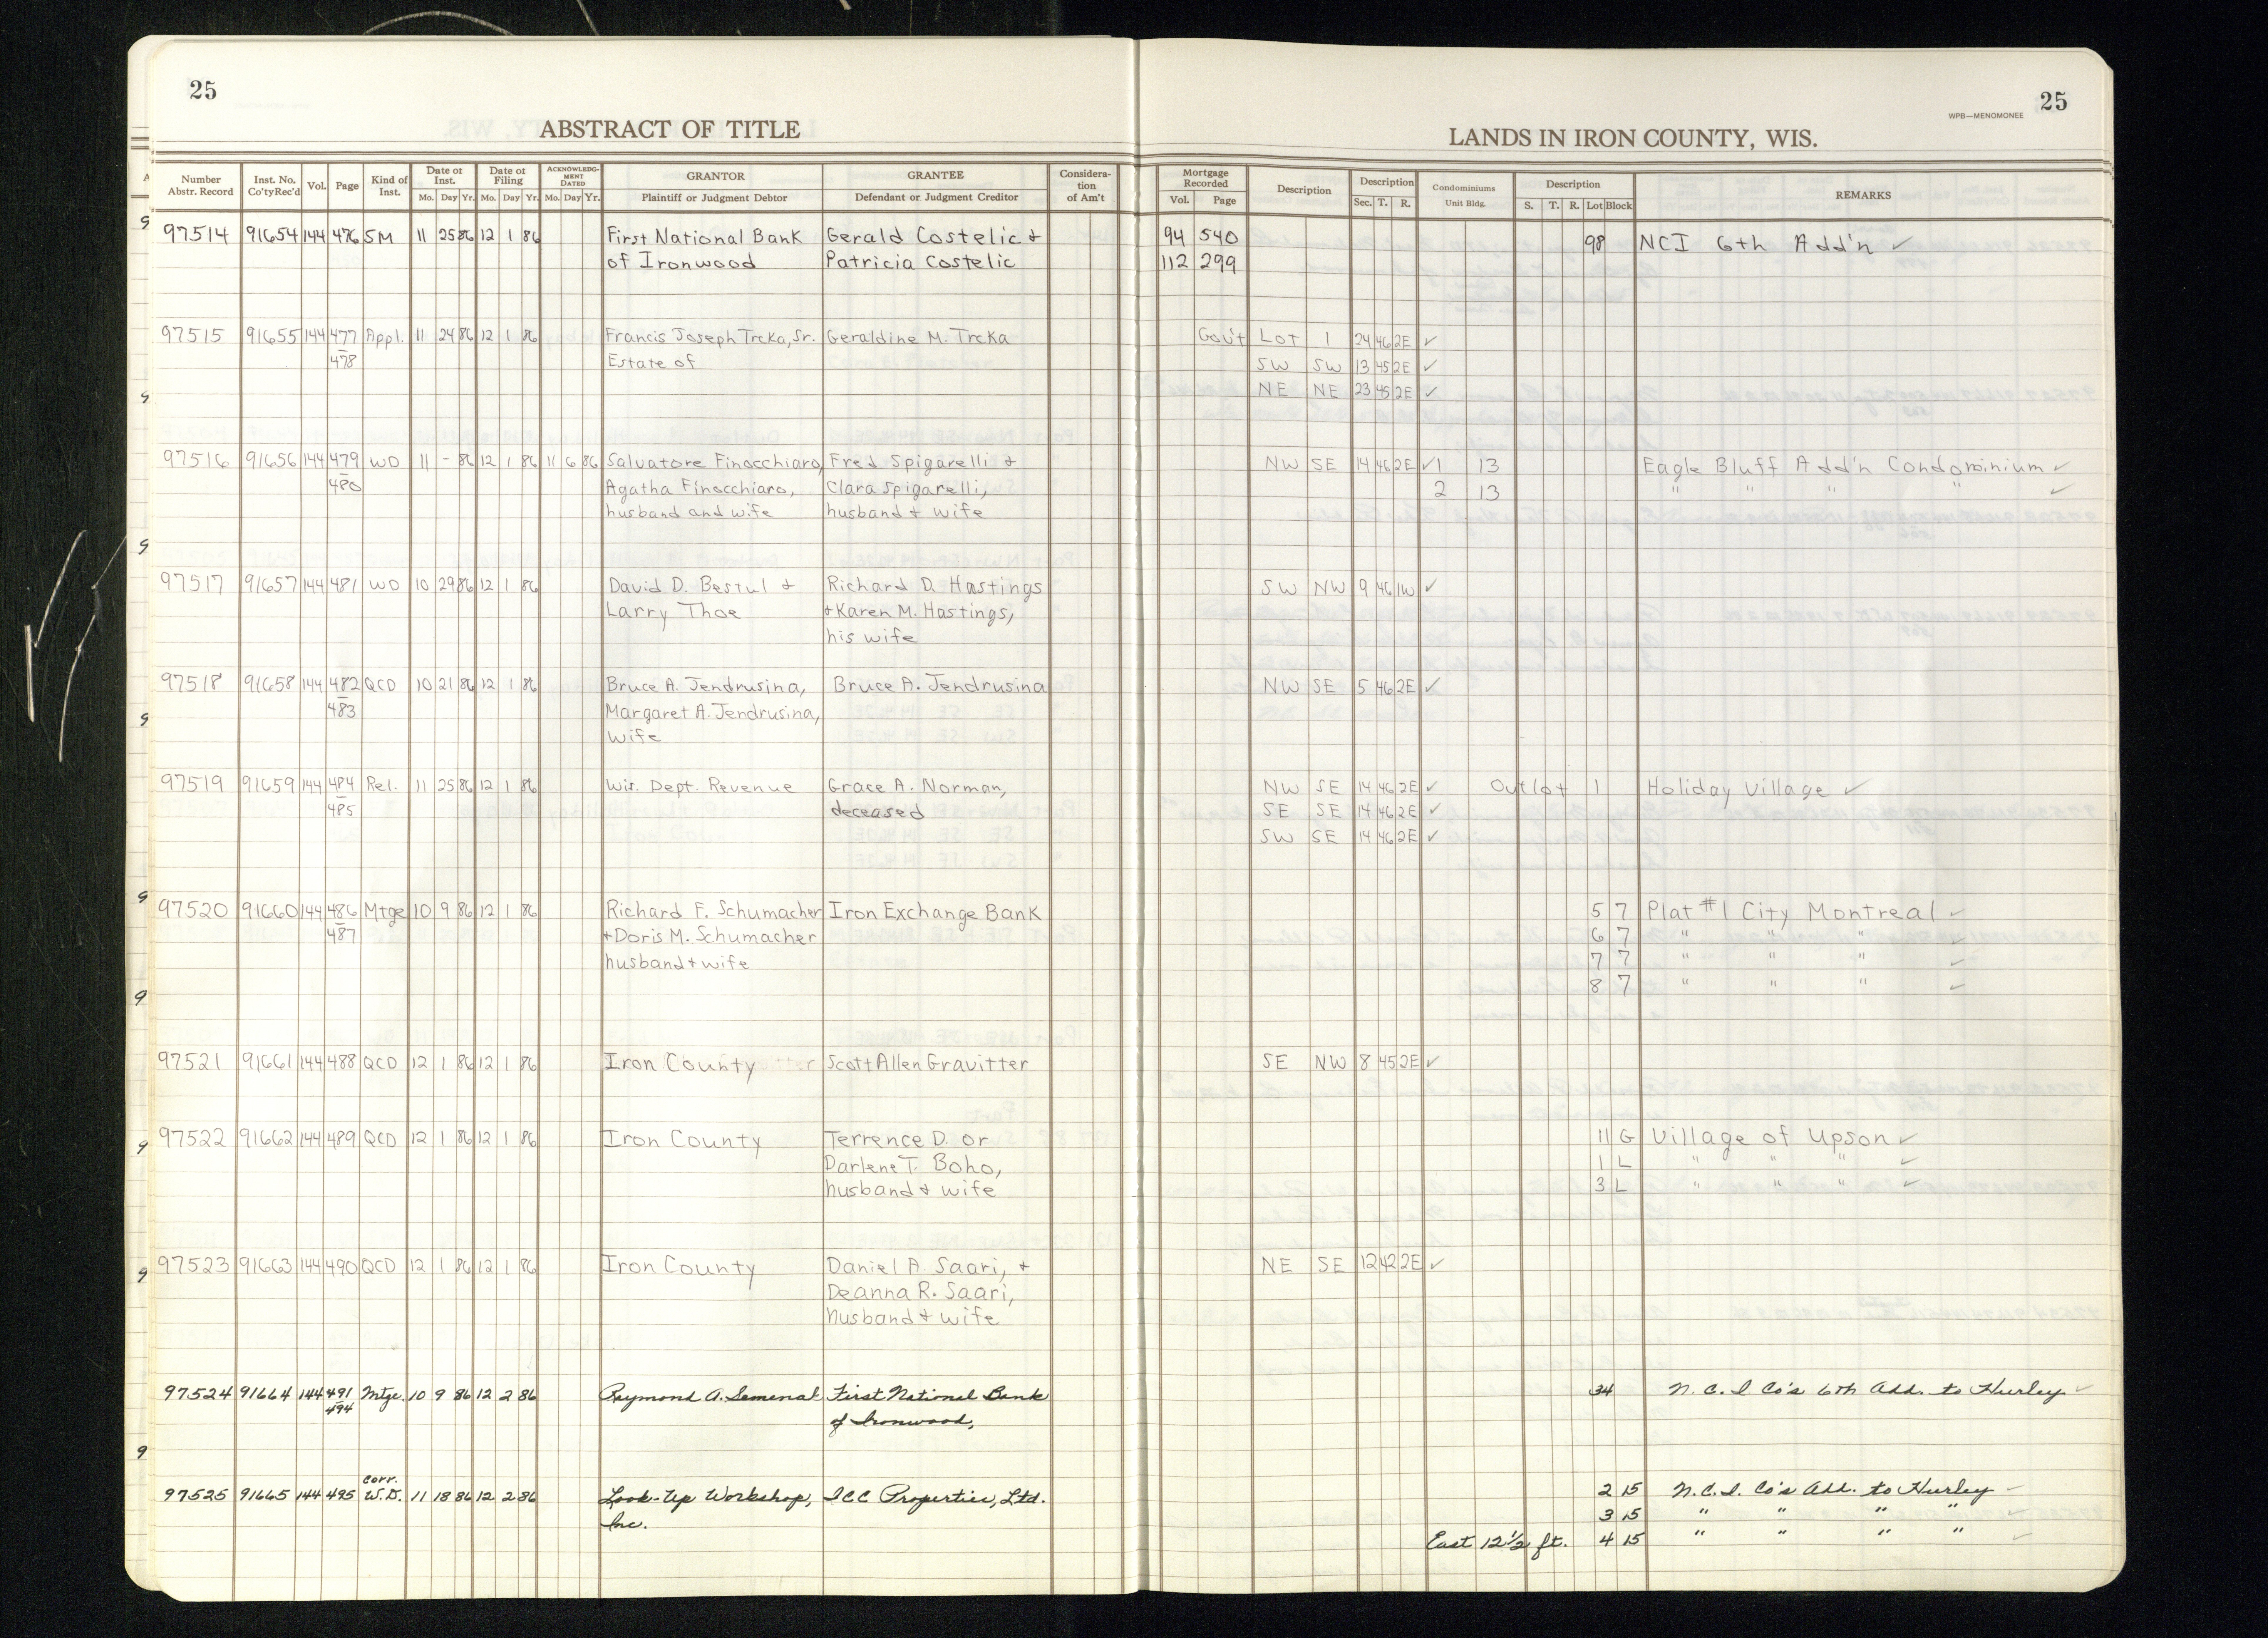 25
25
WPB—MENOMONEE
ABSTRACT OF TITLE
LANDS IN IRON COUNTY, WIS.
Number Abstr. Record | Inst. No. Co'tyRec'd | Vol. | Page | Kind of Inst. | Date of Inst. Mo. Day Yr. | Date of Filing Mo. Day Yr. | ACKNOWLEDG-MENT DATED Mo. Day Yr. | GRANTOR Plaintiff or Judgment Debtor | GRANTEE Defendant or Judgment Creditor | Considera-tion of Am't | Mortgage Recorded Vol. Page | Description | Description Sec. T. R. | Condominiums Unit Bldg. | Description S. T. R. Lot Block | REMARKS
97514 91654 144 476 SM 11 25 86 12 1 86 First National Bank Gerald Costelic & 94 540 98 NCI 6th Add'n ✓
of Ironwood Patricia Costelic 112 299
97515 91655 144 477 Appl. 11 24 86 12 1 86 Francis Joseph Trcka, Sr. Geraldine M. Trcka Gov't Lot 1 24 46 2E ✓
478 Estate of SW SW 13 45 2E ✓
NE NE 23 45 2E ✓
97516 91656 144 479 WD 11 - 86 12 1 86 11 6 86 Salvatore Finocchiaro, Fred Spigarelli & NW SE 14 46 2E ✓ 1 13 Eagle Bluff Add'n Condominium ✓
480 Agatha Finocchiaro, Clara Spigarelli, 2 13 " " " " ✓
husband and wife husband & wife
97517 91657 144 481 WD 10 29 86 12 1 86 David D. Bestul & Richard D. Hastings SW NW 9 46 1W ✓
Larry Thoe & Karen M. Hastings,
his wife
97518 91658 144 482 QCD 10 21 86 12 1 86 Bruce A. Jendrusina, Bruce A. Jendrusina NW SE 5 46 2E ✓
483 Margaret A. Jendrusina,
wife
97519 91659 144 484 Rel. 11 25 86 12 1 86 Wis. Dept. Revenue Grace A. Norman, NW SE 14 46 2E ✓ Outlot 1 Holiday Village ✓
485 deceased SE SE 14 46 2E ✓
SW SE 14 46 2E ✓
97520 91660 144 486 Mtge 10 9 86 12 1 86 Richard F. Schumacher Iron Exchange Bank 5 7 Plat #1 City Montreal ✓
487 & Doris M. Schumacher 6 7 " " " ✓
husband & wife 7 7 " " " ✓
8 7 " " " ✓
97521 91661 144 488 QCD 12 1 86 12 1 86 Iron County Scott Allen Gravitter SE NW 8 45 2E ✓
97522 91662 144 489 QCD 12 1 86 12 1 86 Iron County Terrence D. or 11 G Village of Upson ✓
Darlene T. Boho, 1 L " " " ✓
husband & wife 3 L " " " ✓
97523 91663 144 490 QCD 12 1 86 12 1 86 Iron County Daniel A. Saari, & NE SE 12 42 2E ✓
Deanna R. Saari,
husband & wife
97524 91664 144 491 Mtge. 10 9 86 12 2 86 Raymond A. Semenak First National Bank 34 N. C. I Co's 6th Add. to Hurley ✓
494 of Ironwood,
Corr.
97525 91665 144 495 W.D. 11 18 86 12 2 86 Look-Up Workshop, ICC Properties, Ltd. 2 15 N. C. I. Co's Add. to Hurley ✓
Inc. 3 15 " " " " ✓
East 12 1/2 ft. 4 15 " " " " ✓